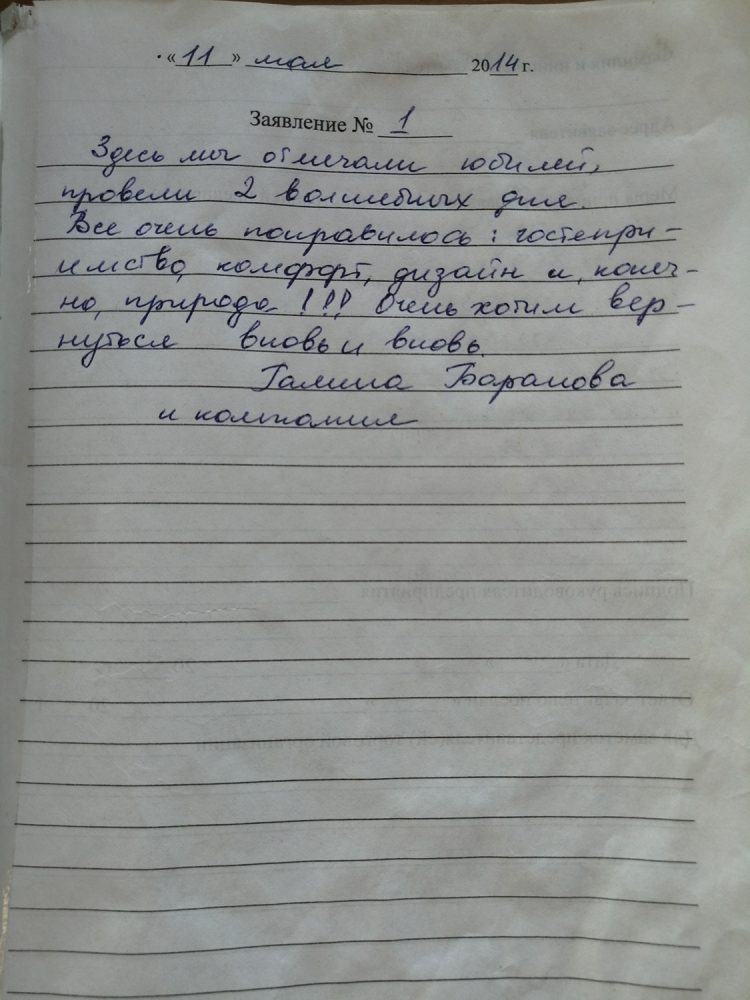 «11» мая 2014 г.
Заявление № 1
Здесь мы отмечали юбилей,
провели 2 волшебных дня.
Все очень понравилось: гостепри-
имство, комфорт, дизайн и, конеч-
но, природа!!! Очень хотим вер-
нуться вновь и вновь.
Галина Баранова
и компания